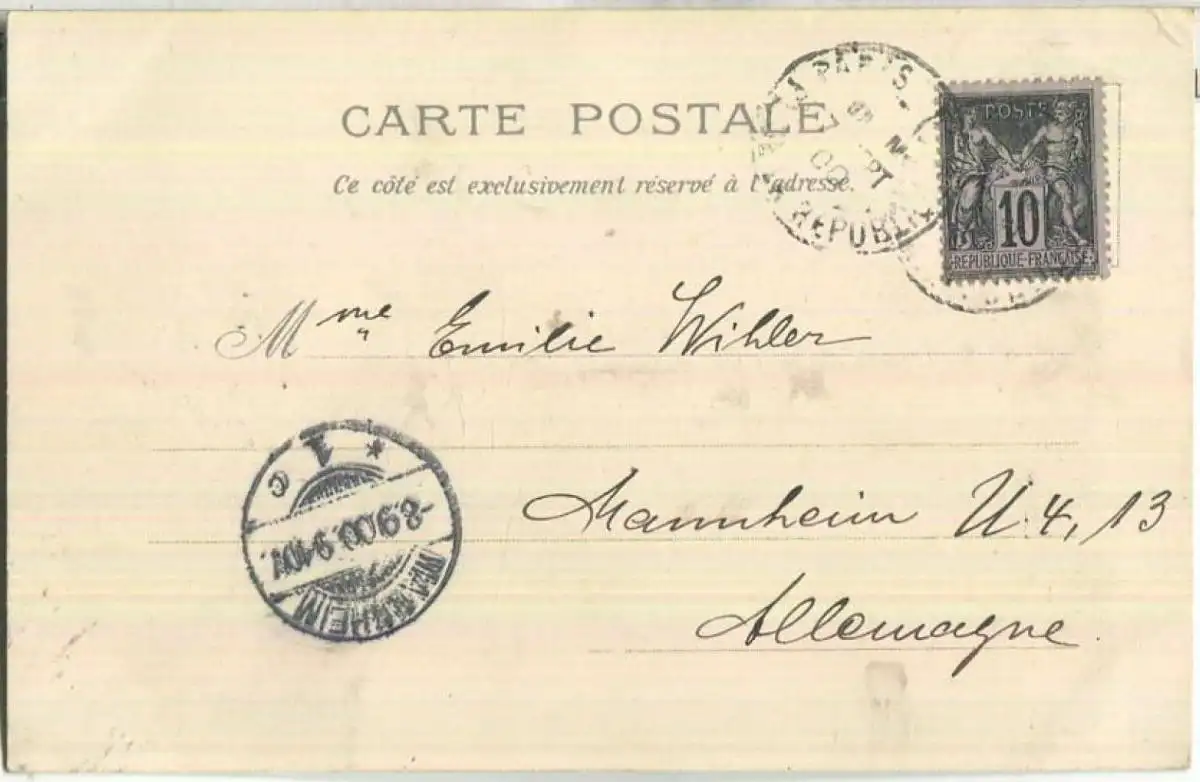 PARIS
7 SEPT
00
REPUBL
POSTE
10
REPUBLIQUE-FRANÇAISE
CARTE POSTALE
Ce côté est exclusivement réservé à l'adresse.
Mme Emilie Wihler
Mannheim U. 4, 13
Allemagne.
MANNHEIM
-8.9.00. 9-10V.
* 1 c